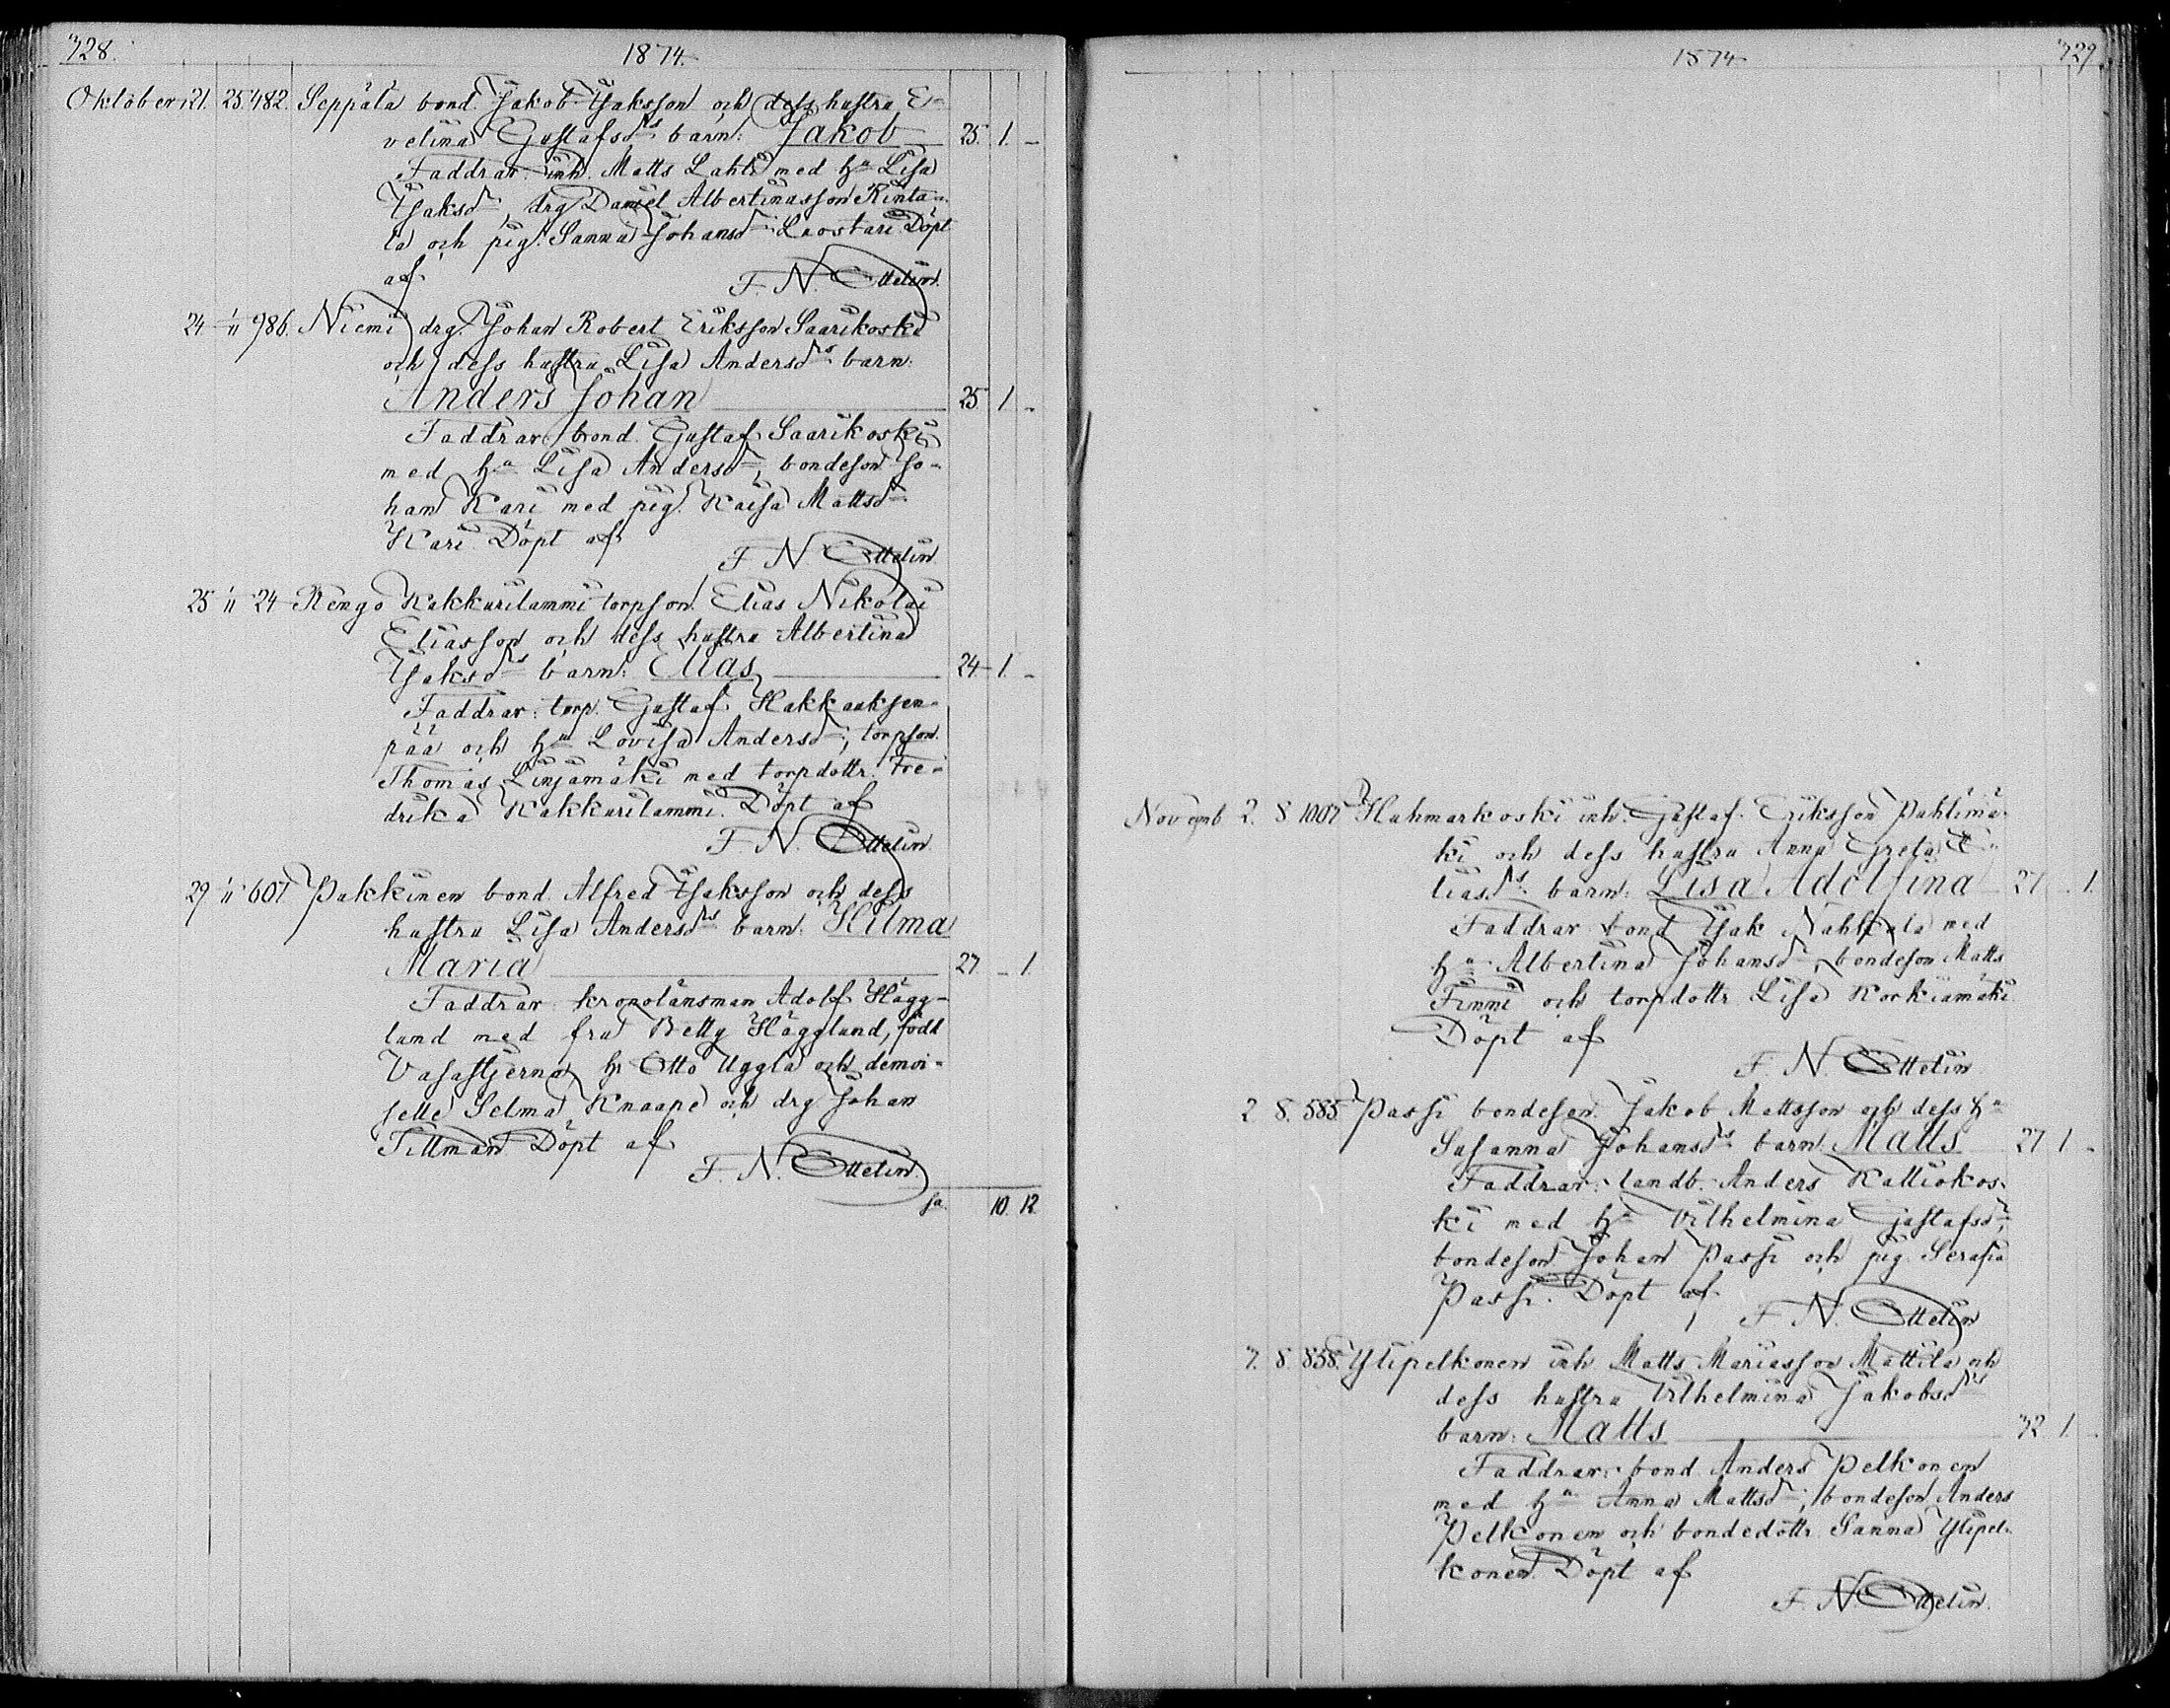 728.
1874.
Oktober 21. 25. 482. Seppälä bond. Jakob Isaksson och dess hustru E-
velina Gustafsd:rs barn: Jakob 25. 1. -
Faddrar: inh. Matts Lahti med h:u Lisa
Isaksd:r, drg. Daniel Albertinasson Rinta-
la och pig. Sanna Johansd:r Luostari. Döpt
af F. N. Ottelin.
24 " 986. Niemi drg. Johan Robert Eriksson Saarikoski
och dess hustru Lisa Andersd:rs barn:
Anders Johan 25. 1 -
Faddrar: bond. Gustaf Saarikoski
med h:u Lisa Andersd:r, bondeson Jo-
han Kari med pig. Kaisa Mattsd:r
Kari. Döpt af
F. N. Ottelin
25 " 24 Rengo Kakkurilammi torpson Elias Nikolai
Eliasson och dess hustru Albertina
Isaksd:rs barn: Elias 24 1. -
Faddrar: torp. Gustaf Hakkaaksen-
pää och h:u Lovisa Andersd:r, torpson.
Thomas Linjamäki med torpdottr. Fre-
drika Kakkurilammi. Döpt af
F. N. Ottelin.
29 " 607 Pakkinen bond. Alfred Isaksson och dess
hustru Lisa Andersd:rs barn: Hilma
Maria 27 - 1.
Faddrar: kronolänsman Adolf Hägg-
lund med fru Betty Hägglund, född
Vasastjerna, hr Otto Uggla och demoi-
selle Selma Knaape och drg. Johan
Tillman. Döpt af
F. N. Ottelin.
sa. 10. 12.
1874
729.
Novemb 2. 8. 1007 Hahmarkoski inh. Gustaf Eriksson Pahlimä-
ki och dess hustru Anna Greta E-
liasd:rs barn: Lisa Adolfina 27 - 1.
Faddrar: bond. Isak Nahkala med
h:u Albertina Johansd:r, bondeson Matts
Finni och torpdottr. Lisa Korkiamäki
Döpt af
F. N. Ottelin
2 8. 585. Passi bondeson. Jakob Mattsson och dess h:u
Susanna Johansd:rs barn: Matts 27 1 -
Faddrar: landb. Anders Kattiokos-
ki med h:u Vilhelmina Gustafsd:r,
bondeson Johan Passi och pig. Serafia
Passi. Döpt af
F. N. Ottelin
7. 8. 858. Ylipelkonen inh. Matts Mariasson Mattila och
dess hustru Vilhelmina Jakobsd:rs
barn: Matts 32 1. -
Faddrar: bond. Anders Pelkonen
med h:u Anna Mattsd:r, bondeson Anders
Pelkonen och bondedottr. Sanna Ylipel-
konen. Döpt af
F. N. Ottelin.